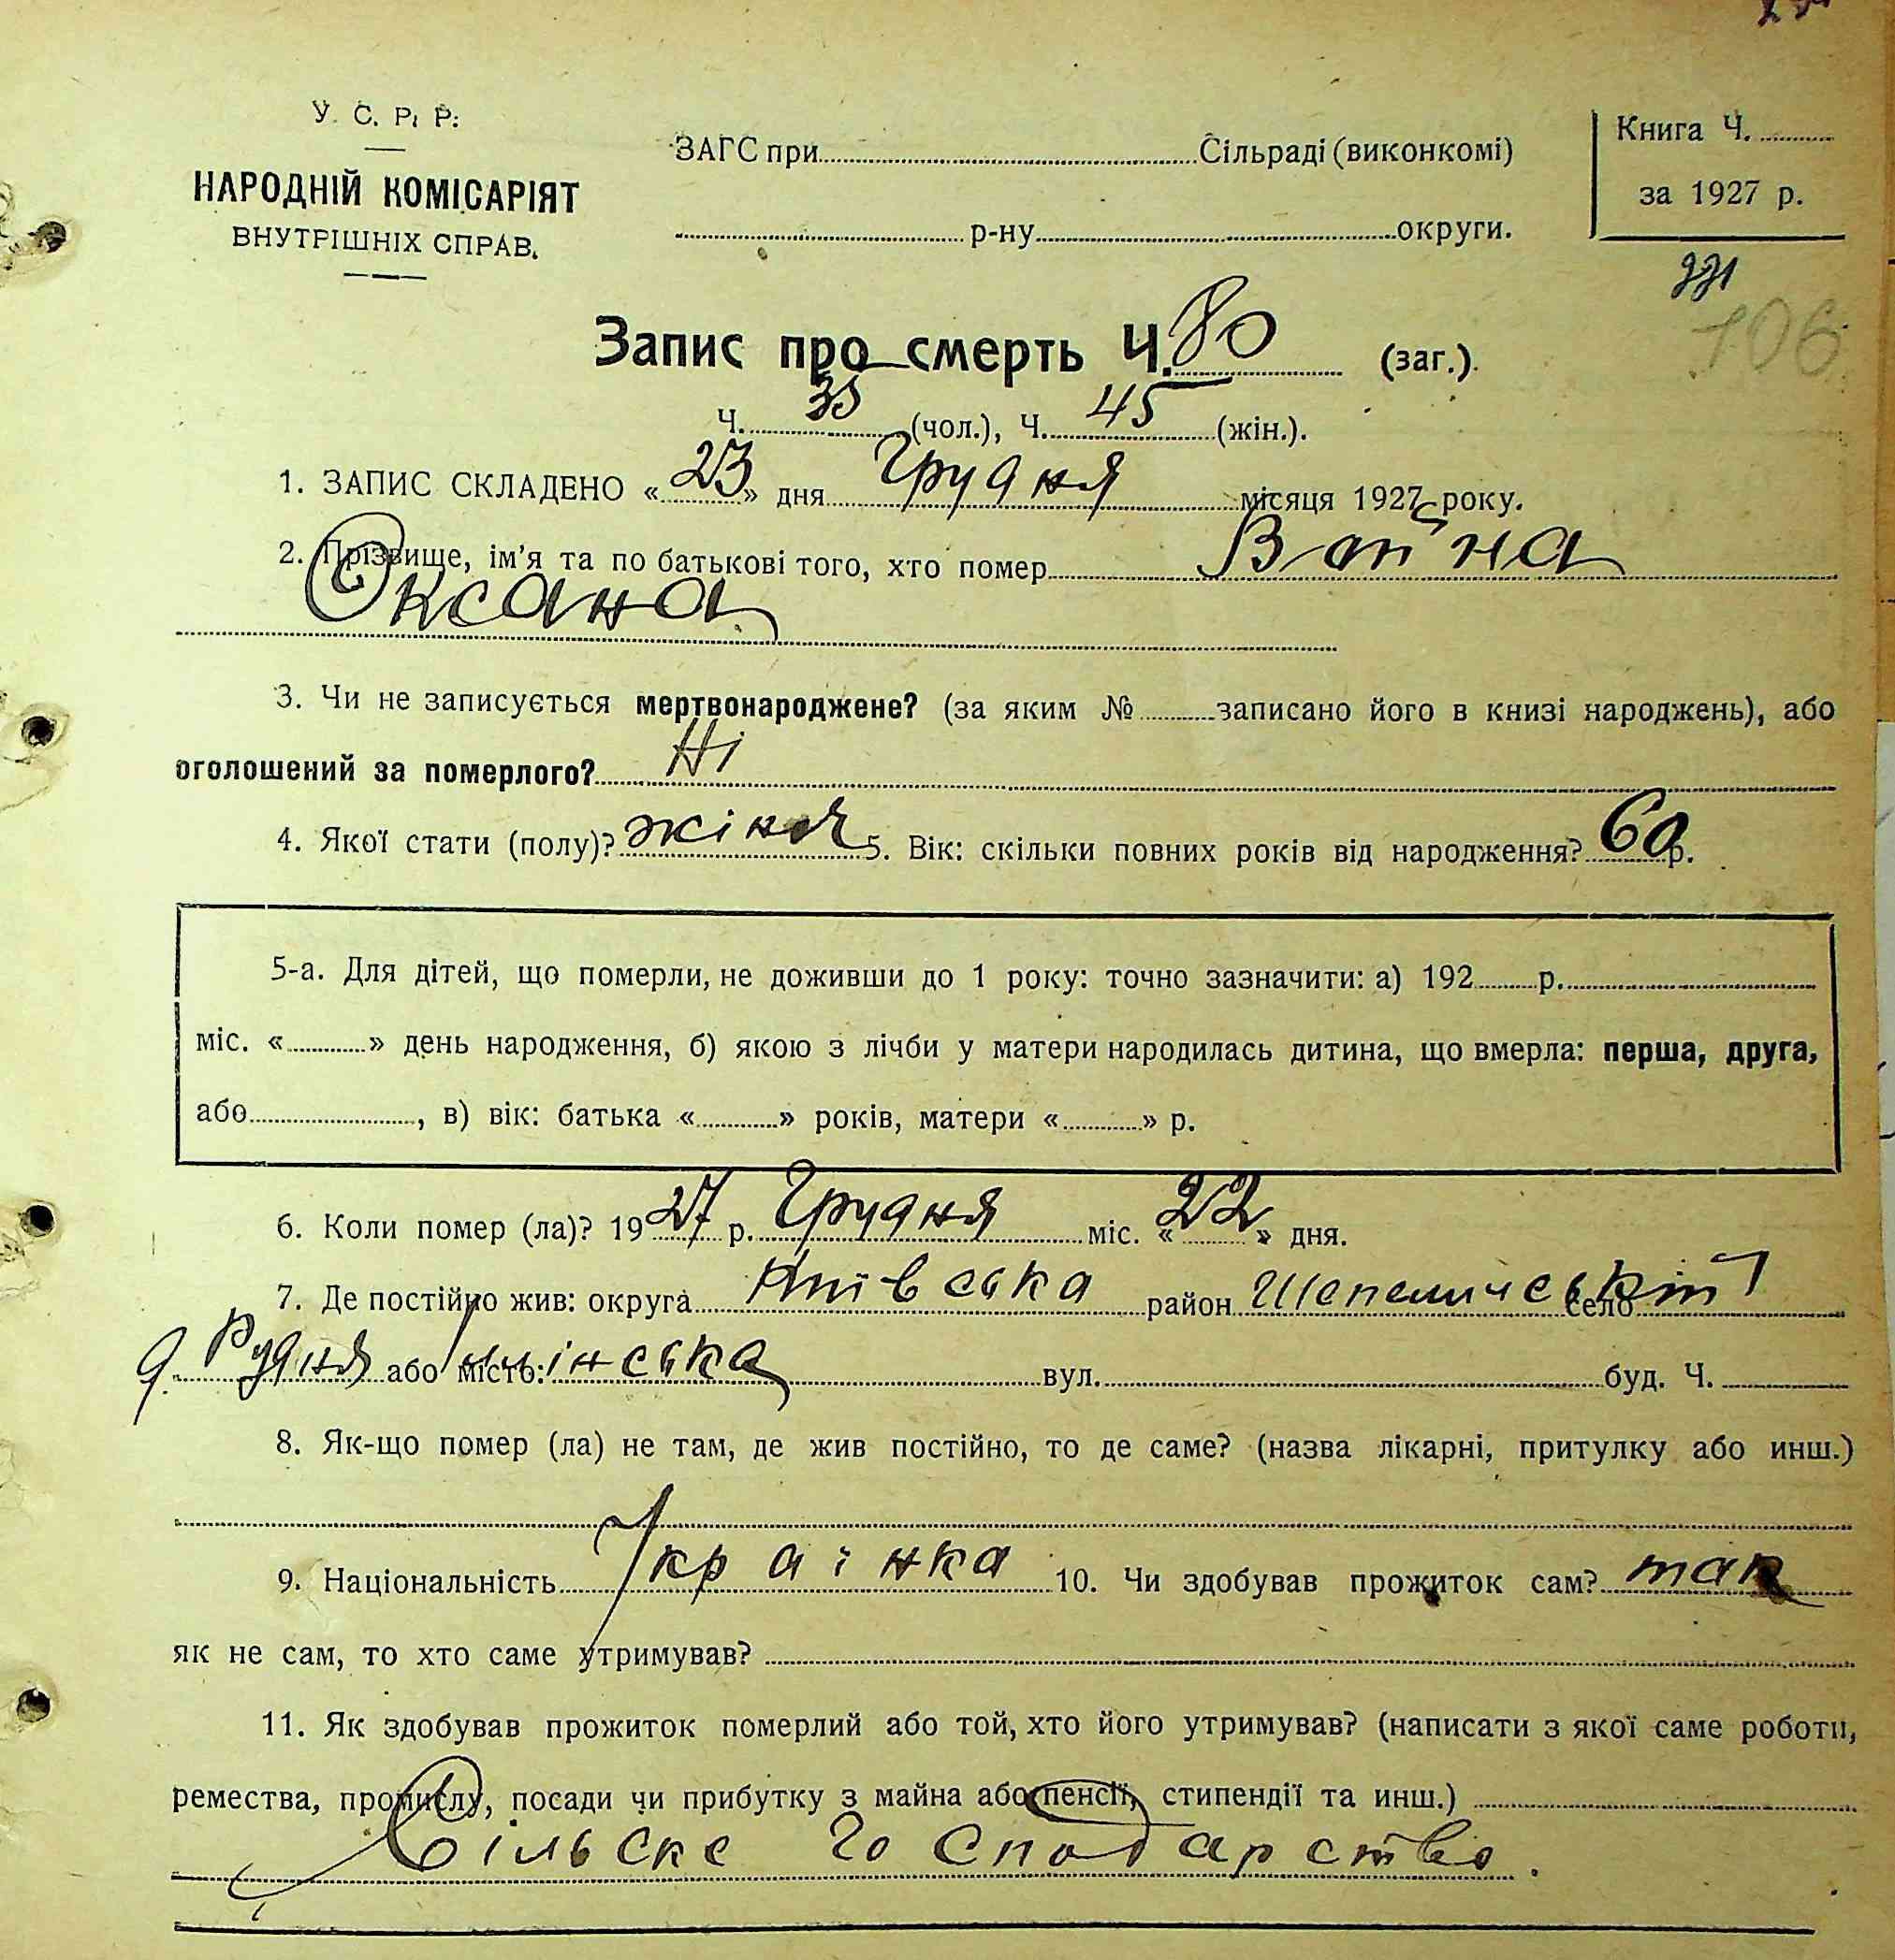 У. С. Р. Р.
НАРОДНІЙ КОМІСАРІЯТ
ВНУТРІШНІХ СПРАВ.
ЗАГС при Сільраді (виконкомі)
р-ну округи.
Книга Ч.
за 1927 р.
221
106
Запис про смерть Ч. 80 (заг.).
Ч. 35 (чол.), Ч. 45 (жін.).
1. ЗАПИС СКЛАДЕНО «23» дня Грудня місяця 1927 року.
2. Прізвище, ім'я та по батькові того, хто помер Война
Оксана
3. Чи не записується мертвонароджене? (за яким № записано його в книзі народжень), або
оголошений за померлого? Ні
4. Якої стати (полу)? жіноч 5. Вік: скільки повних років від народження? 60 р.
5-а. Для дітей, що померли, не доживши до 1 року: точно зазначити: а) 192 р.
міс. « » день народження, б) якою з лічби у матери народилась дитина, що вмерла: перша, друга,
або , в) вік: батька « » років, матери « » р.
6. Коли помер (ла)? 1927 р. Грудня міс. «22» дня.
7. Де постійно жив: округа Київська район Шепелический село
д. Рудня або місто: Ільінська вул. буд. Ч.
8. Як-що помер (ла) не там, де жив постійно, то де саме? (назва лікарні, притулку або инш.)
9. Національність Українка 10. Чи здобував прожиток сам? так
як не сам, то хто саме утримував?
11. Як здобував прожиток померлий або той, хто його утримував? (написати з якої саме роботи,
ремества, промислу, посади чи прибутку з майна або пенсії, стипендії та инш.)
Сільске господарство.